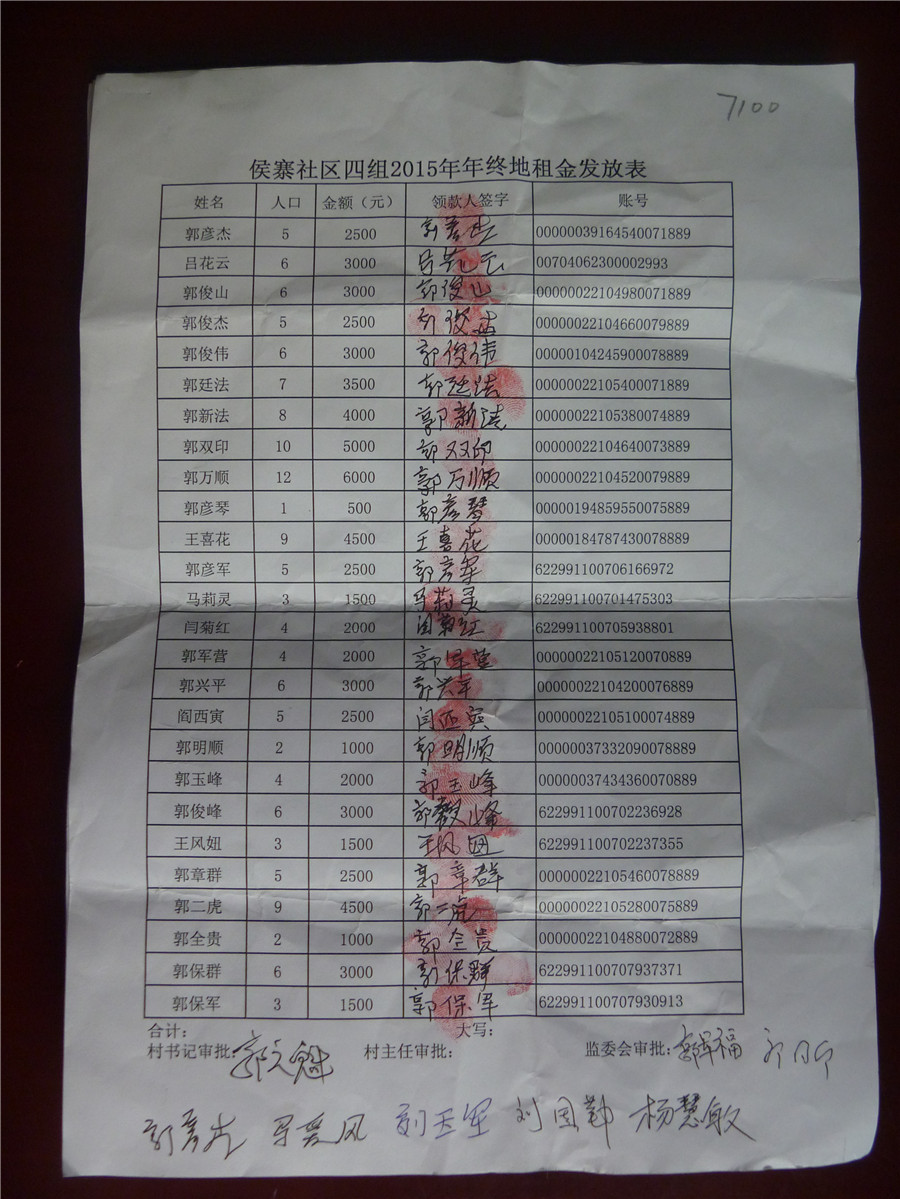 7100
侯寨社区四组2015年年终地租金发放表
姓名 人口 金额（元） 领款人签字 账号
郭彦杰 5 2500 郭彦杰 00000039164540071889
吕花云 6 3000 吕花云 00704062300002993
郭俊山 6 3000 郭俊山 00000022104980071889
郭俊杰 5 2500 郭俊杰 00000022104660079889
郭俊伟 6 3000 郭俊伟 00000104245900078889
郭廷法 7 3500 郭廷法 00000022105400071889
郭新法 8 4000 郭新法 00000022105380074889
郭双印 10 5000 郭双印 00000022104640073889
郭万顺 12 6000 郭万顺 00000022104520079889
郭彦琴 1 500 郭彦琴 00000194859550075889
王喜花 9 4500 王喜花 00000184787430078889
郭彦军 5 2500 郭彦军 622991100706166972
马莉灵 3 1500 马莉灵 622991100701475303
闫菊红 4 2000 闫菊红 622991100705938801
郭军营 4 2000 郭军营 00000022105120070889
郭兴平 6 3000 郭兴平 00000022104200076889
阎西寅 5 2500 闫西寅 00000022105100074889
郭明顺 2 1000 郭明顺 00000037332090078889
郭玉峰 4 2000 郭玉峰 00000037434360070889
郭俊峰 6 3000 郭毅峰 622991100702236928
王风妞 3 1500 王风妞 622991100702237355
郭章群 5 2500 郭章群 00000022105460078889
郭二虎 9 4500 郭二虎 00000022105280075889
郭全贵 2 1000 郭全贵 00000022104880072889
郭保群 6 3000 郭保群 622991100707937371
郭保军 3 1500 郭保军 622991100707930913
合计： 大写：
村书记审批：郭文魁 村主任审批： 监委会审批：
刘玉军 刘国勤 杨慧敏